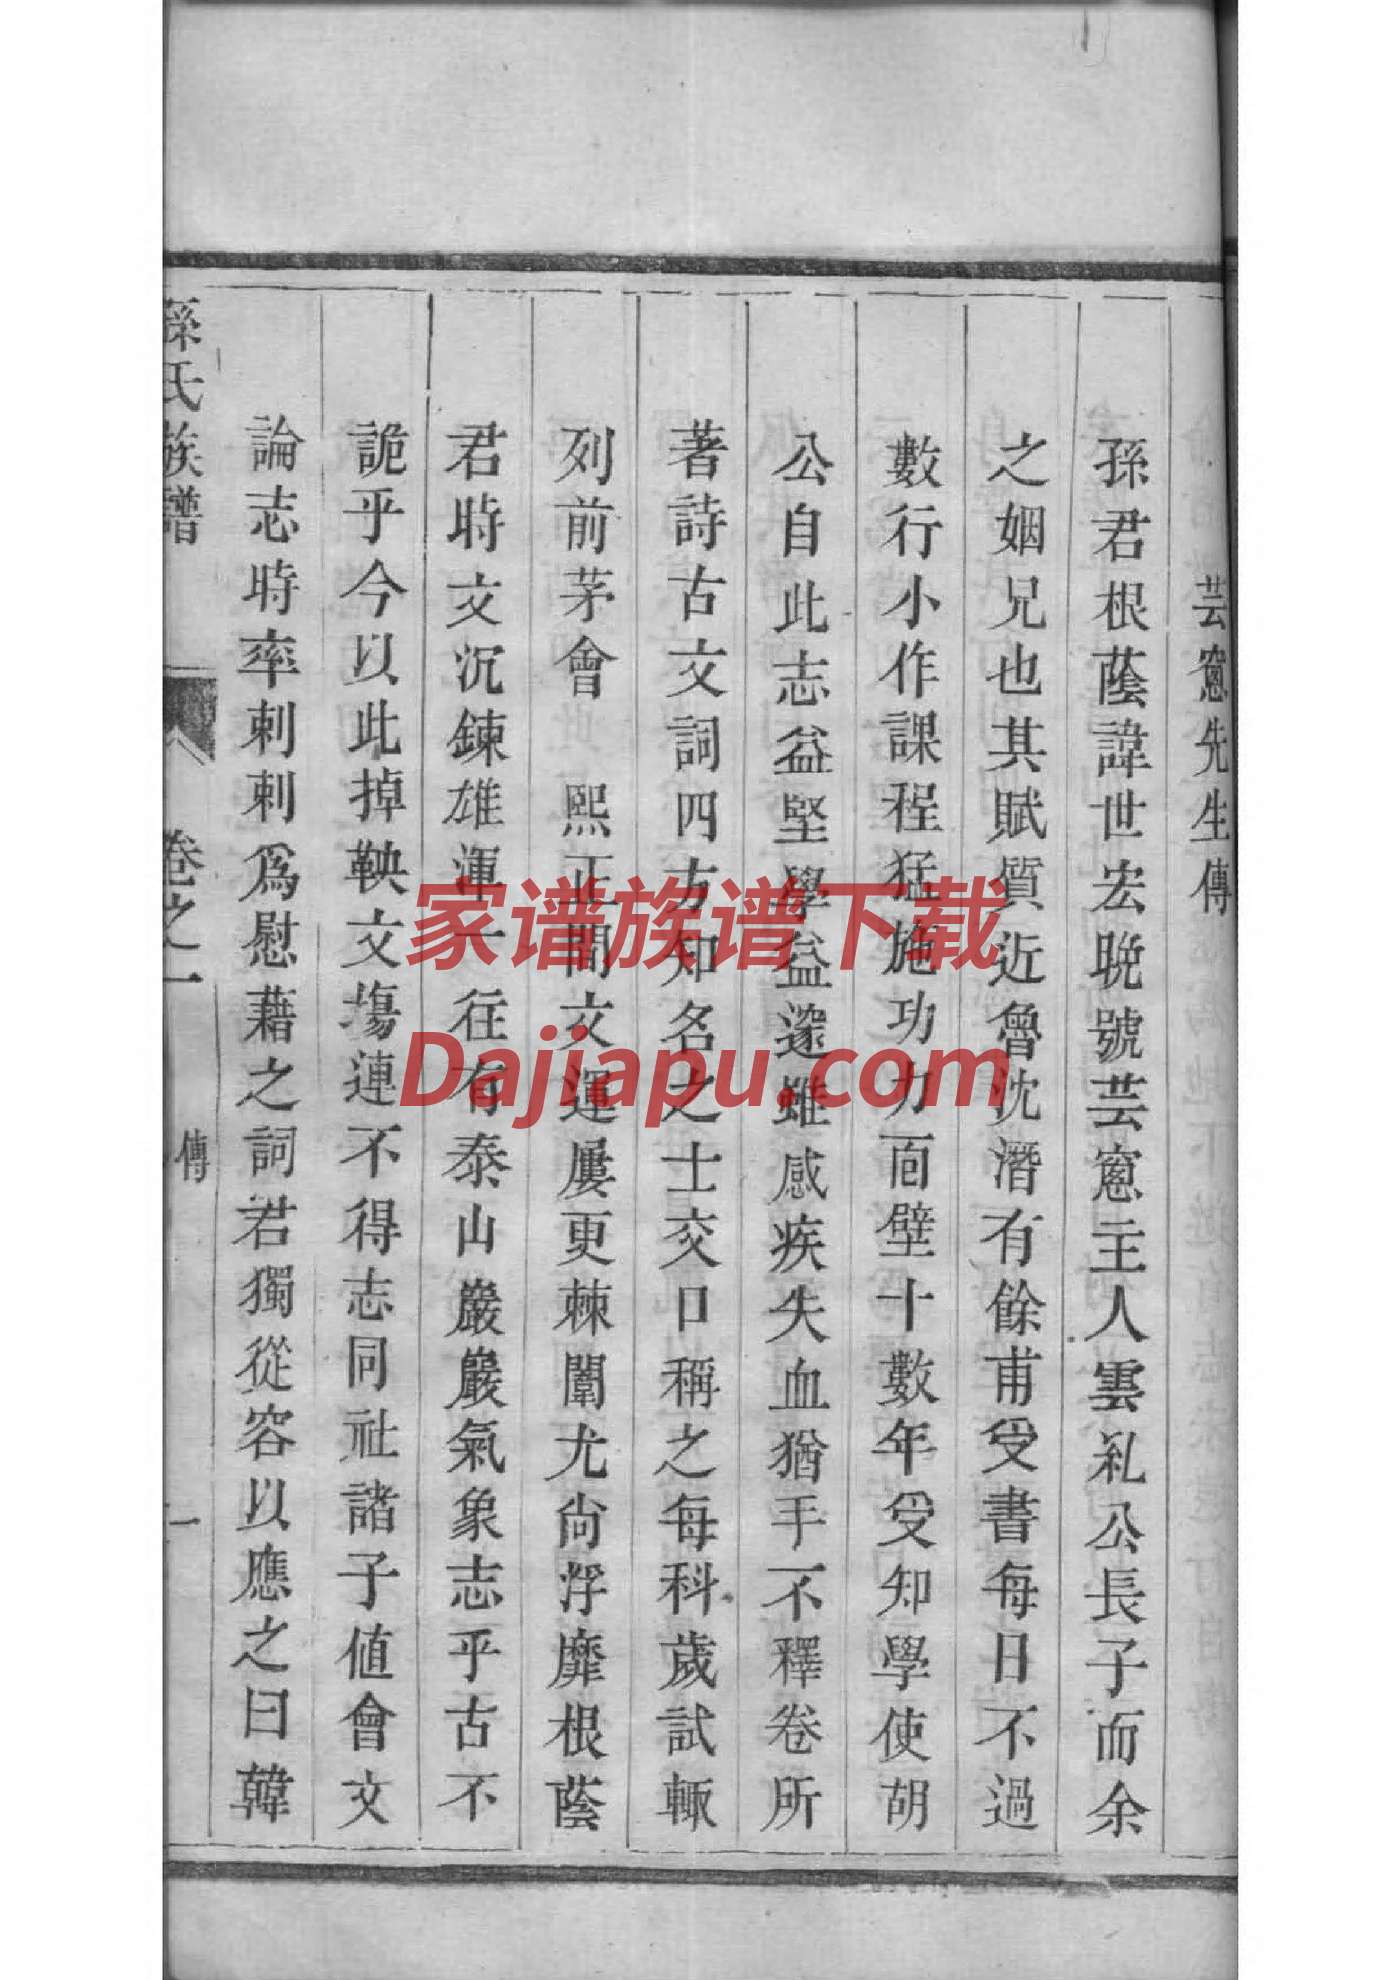 芸窻先生傳
孫君根蔭諱世宏晩號芸窻主人雲礼公長子而余
之姻兄也其賦質近魯沈潛有餘甫受書每日不過
數行小作課程猛施功力面壁十數年受知學使胡
公自此志益堅學益邃雖感疾失血猶手不釋卷所
著詩古文詞四方知名之士交口稱之每科歲試輙
列前茅會 熙正間文運屢更棘闈尤尙浮靡根蔭
君時文沉鍊雄渾一往有泰山巖巖氣象志乎古不
詭乎今以此掉鞅文塲連不得志同社諸子値會文
論志時率剌剌爲慰藉之詞君獨從容以應之曰韓
孫氏族譜 卷之一 傳 一
家谱族谱下载
Dajiapu.com